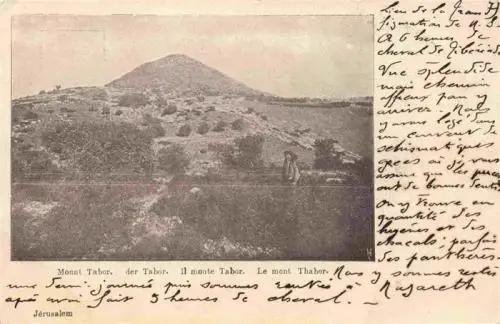 Lieu de la Transfi
figuration de N. S.
A 6 heures de
cheval de Tibériade
Vue splendide
mais chemin
affreux pour y
arriver. Nous
y avons logé dans
un couvent de
schismatiques
grecs où je vous
assure que les puces
ont de bonnes dents
on y trouve en
quantité des
hyènes et des
chacals, parfois
des panthères.
Mount Tabor. der Tabor. Il monte Tabor. Le mont Thabor.
Nous y sommes restés
une demi-journée puis sommes rentrés à Nazareth
après avoir fait 3 heures de cheval.
Jérusalem